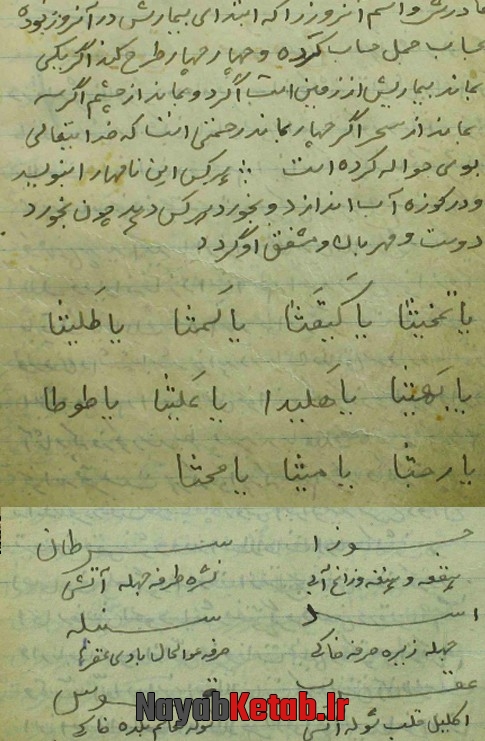 مادرش و اسم آنروز را که ابتدای بیمارش در آنروز بوده
بحساب جمل حساب کرده و چهار چهار طرح کند اگر یکی
بماند بیماریش از زمین است اگر دو بماند از چشم اگر سه
بماند از سحر اگر چهار بماند زحمتی است که خدایتعالی
بوی حواله کرده است هرکس این نامها را بنویسد
و در کوزه آب اندازد و بخورد هرکس دهد چون بخورد
دوست و مهربان و مشفق او گردد
یا تمخیثا یا کَیَقَثا یا کمثا یا طَلیثا
یا بهیثا یا هلیدا یا عَلیثا یا طوطا
یا رحثا یا میثا یا محثا
جوزا سرطان
هقعه و هنعه ذراع آبی نثره طرفه جبهه آتشی
اسد سنبله
جبهه زبره صرفه خاکی صرفه عوا بادی
عقرب قوس
اکلیل قلب شوله آتشی شوله نعایم بلده خاکی
NayabKetab.Ir